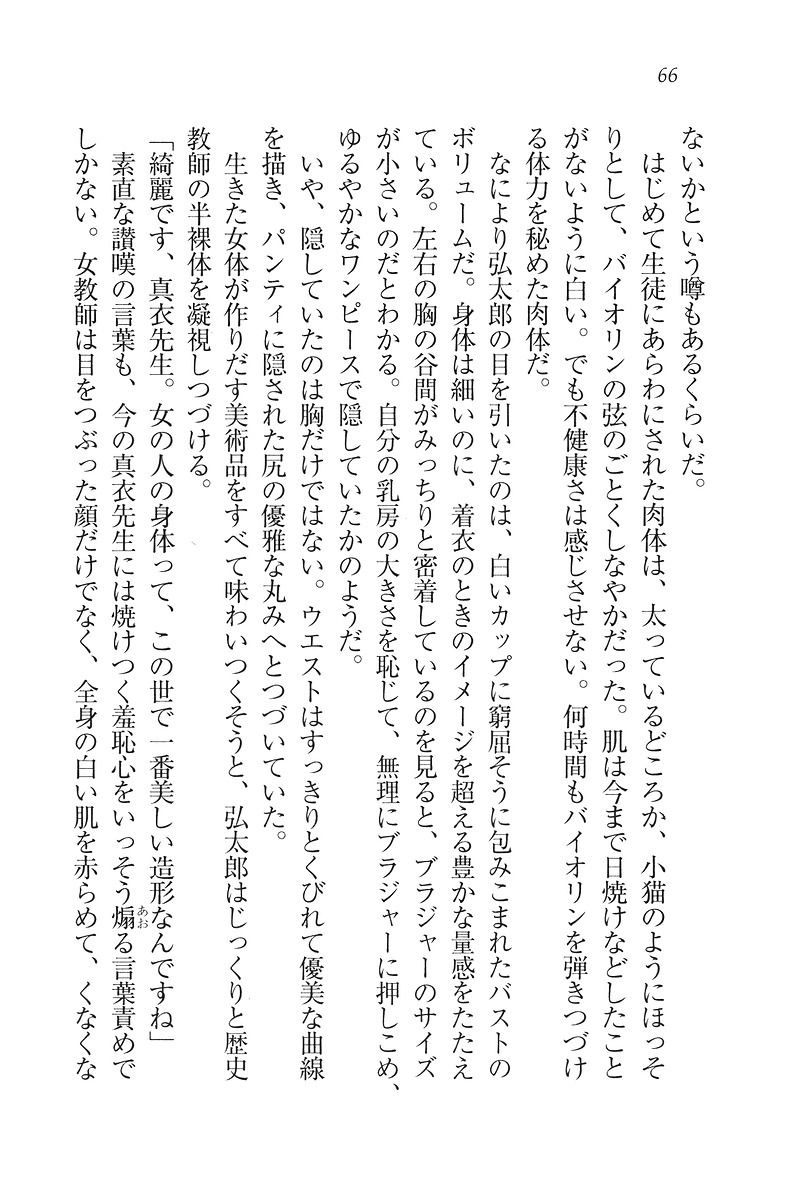 66
ないかという噂もあるくらいだ。
はじめて生徒にあらわにされた肉体は、太っているどころか、小猫のようにほっそ
りとして、バイオリンの弦のごとくしなやかだった。肌は今まで日焼けなどしたこと
がないように白い。でも不健康さは感じさせない。何時間もバイオリンを弾きつづけ
る体力を秘めた肉体だ。
なにより弘太郎の目を引いたのは、白いカップに窮屈そうに包みこまれたバストの
ボリュームだ。身体は細いのに、着衣のときのイメージを超える豊かな量感をたたえ
ている。左右の胸の谷間がみっちりと密着しているのを見ると、ブラジャーのサイズ
が小さいのだとわかる。自分の乳房の大きさを恥じて、無理にブラジャーに押しこめ、
ゆるやかなワンピースで隠していたかのようだ。
いや、隠していたのは胸だけではない。ウエストはすっきりとくびれて優美な曲線
を描き、パンティに隠された尻の優雅な丸みへとつづいていた。
生きた女体が作りだす美術品をすべて味わいつくそうと、弘太郎はじっくりと歴史
教師の半裸体を凝視しつづける。
「綺麗です、真衣先生。女の人の身体って、この世で一番美しい造形なんですね」
素直な讃嘆の言葉も、今の真衣先生には焼けつく羞恥心をいっそう煽る言葉責めで
あお
しかない。女教師は目をつぶった顔だけでなく、全身の白い肌を赤らめて、くなくな